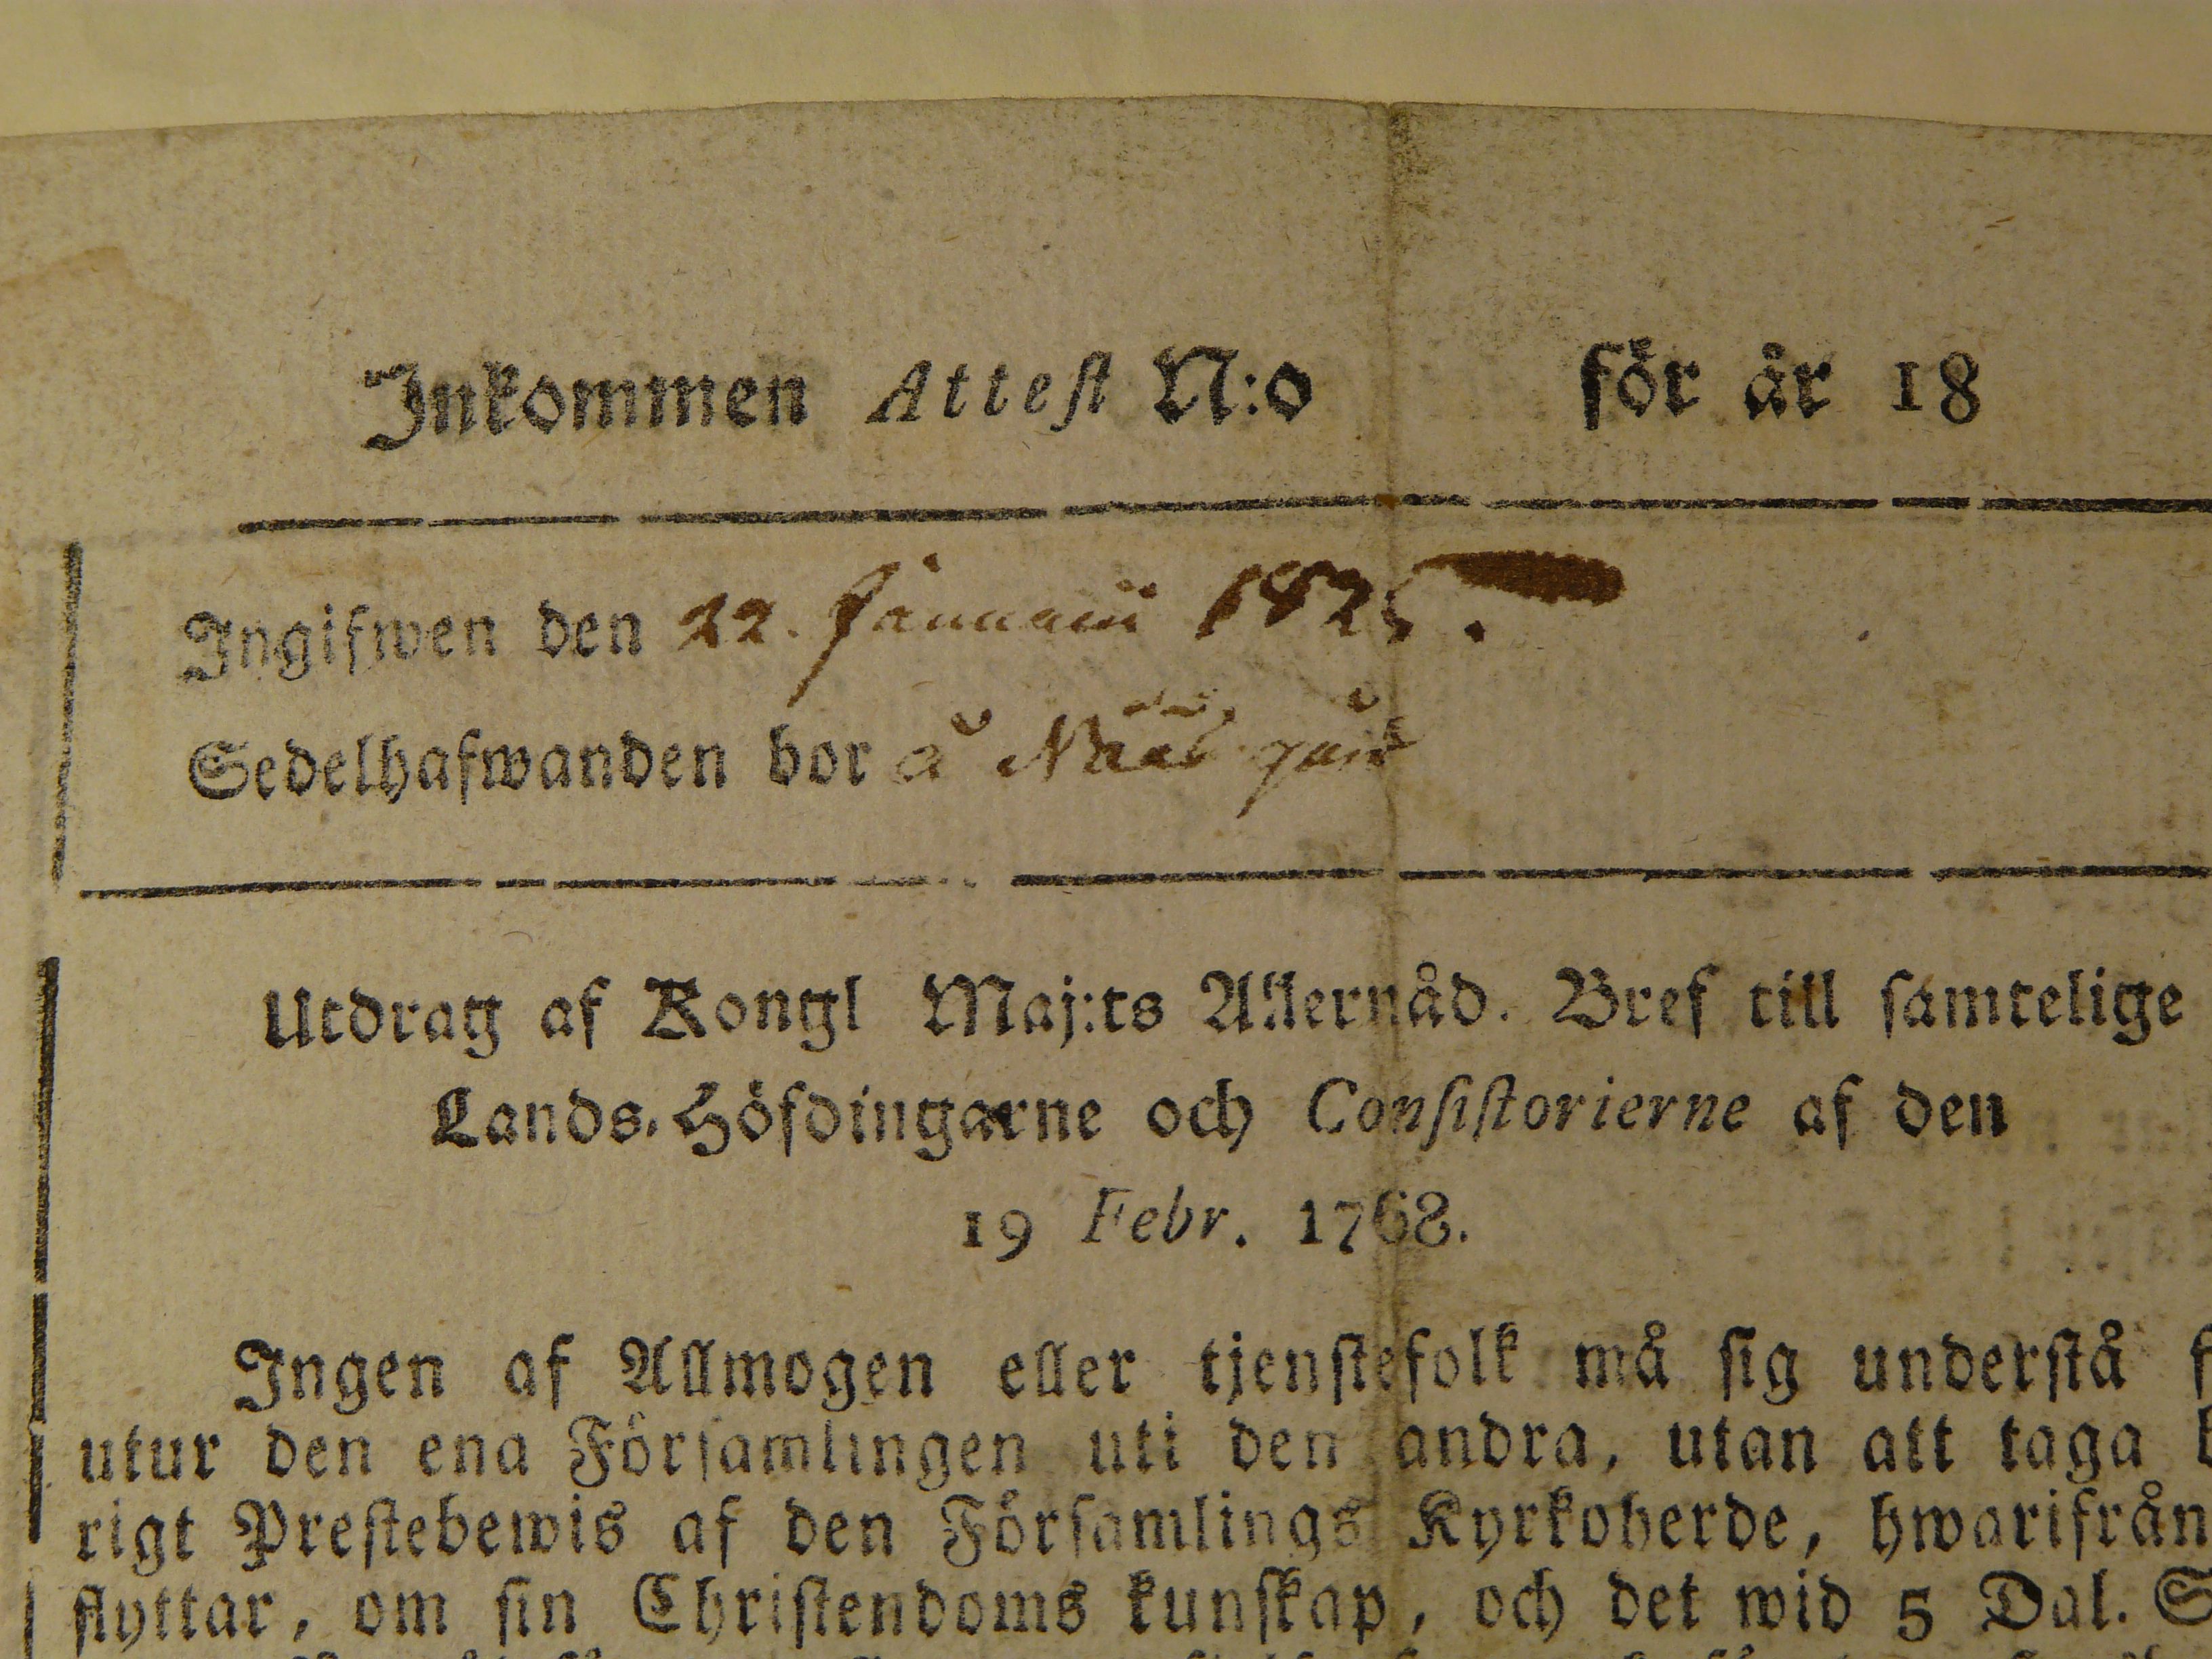 Inkommen Attest N:o för år 18
Ingifwen den 22. Januarii 1825.
Sedelhafwanden bor å
Utdrag af Kongl Maj:ts Allernåd. Bref till samtelige
Lands-Höfdingarne och Consistorierne af den
19 Febr. 1768.
Ingen af Allmogen eller tjenstefolk må sig understå
utur den ena Församlingen uti den andra, utan att taga
rigt Prestebewis af den Församlings Kyrkoherde, hwarifrån
flyttar, om sin Christendoms kunskap, och det wid 5 Dal. S